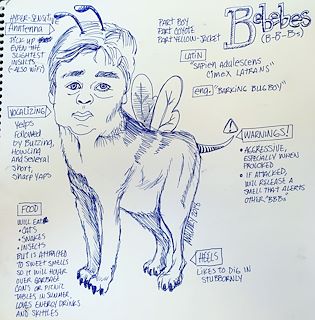 HYPER-SENSITIVE
Antenna
PICK UP
EVEN THE
SLIGHTEST
INSULTS
(-ALSO WIFI)
PART BOY
PART COYOTE
PART YELLOW-JACKET
BeBeBes
(B-B-Bs)
LATIN
"SAPIEN Adulescens
Cimex LATRANS"
eng.
"BARKING BUGBOY"
VOCALIZING
Yelps
followed
by Buzzing,
Howling
and Several
Short,
Sharp Yaps
WARNINGS!
• AGGRESSIVE,
ESPECIALLY WHEN
PROVOKED
• IF ATTACKED,
WILL RELEASE A
SMELL THAT ALERTS
OTHER "BBBs"
FOOD
WILL EAT
• CATS
• SNAKES
• INSECTS
BUT IS ATTRACTED
TO SWEET SMELLS
SO IT WILL HOVER
OVER GARBAGE
CANS OR PICNIC
TABLES IN SUMMER,
LOVES ENERGY DRINKS
AND SKITTLES
HEELS
LIKES TO DIG IN
STUBBORNLY